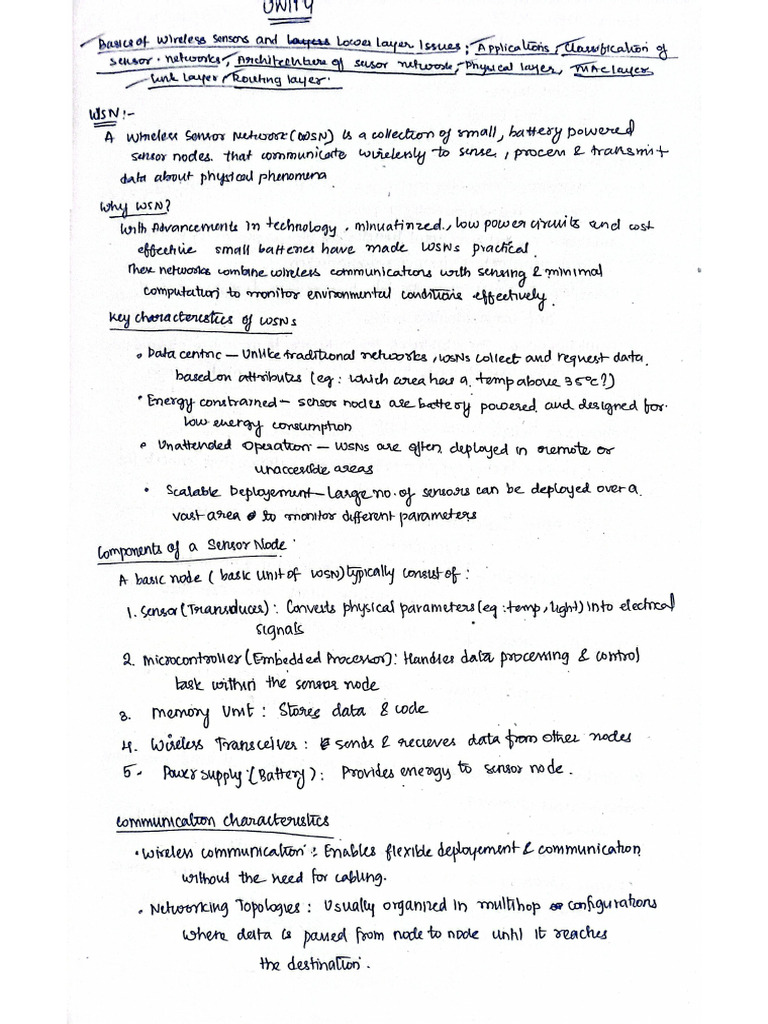 UNIT4
Basics of Wireless Sensors and Lower Layer Issues; Applications, Classification of
sensor networks, Architecture of sensor network, Physical layer, MAC layer
Link Layer, Routing layer.
WSN:-
A wireless Sensor Network (WSN) is a collection of small, battery powered
sensor nodes that communicate wirelessly to sense, process & transmit
data about physical phenomena
Why WSN?
With Advancements in technology, minuatinzed, low power circuits and cost
effective small batteries have made WSNs practical.
These networks combine wireless communications with sensing & minimal
computation to monitor environmental conditions effectively.
Key characteristics of WSNs
• Data centric – Unlike traditional networks, WSNs collect and request data
based on attributes (eg: which area has a temp above 35°c?)
• Energy constrained – sensor nodes are battery powered and designed for
low energy consumption
• Unattended Operation – WSNs are often deployed in remote or
unaccessible areas
• Scalable Deployement – Large no. of sensors can be deployed over a
vast area to monitor different parameters
Components of a Sensor Node
A basic node (basic unit of WSN) typically consist of:
1. Sensor (Transducer): Converts physical parameters (eg: temp, light) into electrical
signals
2. Microcontroller (Embedded Processor): Handles data processing & control
task within the sensor node
3. Memory Unit: Stores data & code
4. Wireless Transceiver: sends & recieves data from other nodes
5- Power supply (Battery): Provides energy to sensor node.
Communication characteristics
• Wireless communication: Enables flexible deployement & communication
without the need for cabling.
• Networking Topologies: Usually organized in multihop configurations
where data is passed from node to node until it reaches
the destination.